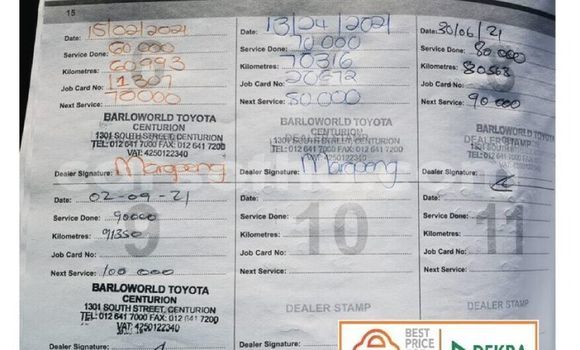 15
Date: 15/02/2021
Service Done: 60 000
Kilometres: 60993
Job Card No: 11307
Next Service: 70000
BARLOWORLD TOYOTA
CENTURION
1301 SOUTH STREET, CENTURION
TEL: 012 641 7000 FAX: 012 641 7200
VAT: 4250122340
Dealer Signature:
Date: 13/04/2021
Service Done: 70 000
Kilometres: 70316
Job Card No: 20572
Next Service: 80000
BARLOWORLD TOYOTA
CENTURION
DEALER STAMP
1301 SOUTH STREET, CENTURION
TEL: 012 641 7000 FAX: 012 641 7200
VAT: 4250122340
Dealer Signature:
Date: 30/06/21
Service Done: 80 000
Kilometres: 80568
Job Card No:
Next Service: 90 000
BARLOWORLD TOYOTA
DEALER STAMP
Dealer Signature:
Date: 02-09-21
Service Done: 90000
9
Kilometres: 91350
Job Card No:
Next Service: 100 000
BARLOWORLD TOYOTA
CENTURION
1301 SOUTH STREET, CENTURION
TEL: 012 641 7000 FAX: 012 641 7200
VAT: 4250122340
Dealer Signature:
Date:
Service Done:
10
Kilometres:
Job Card No:
Next Service:
DEALER STAMP
Date:
Service Done:
11
Kilometres:
Job Card No:
Next Service:
DEALER STAMP
BEST
PRICE
DEKRA